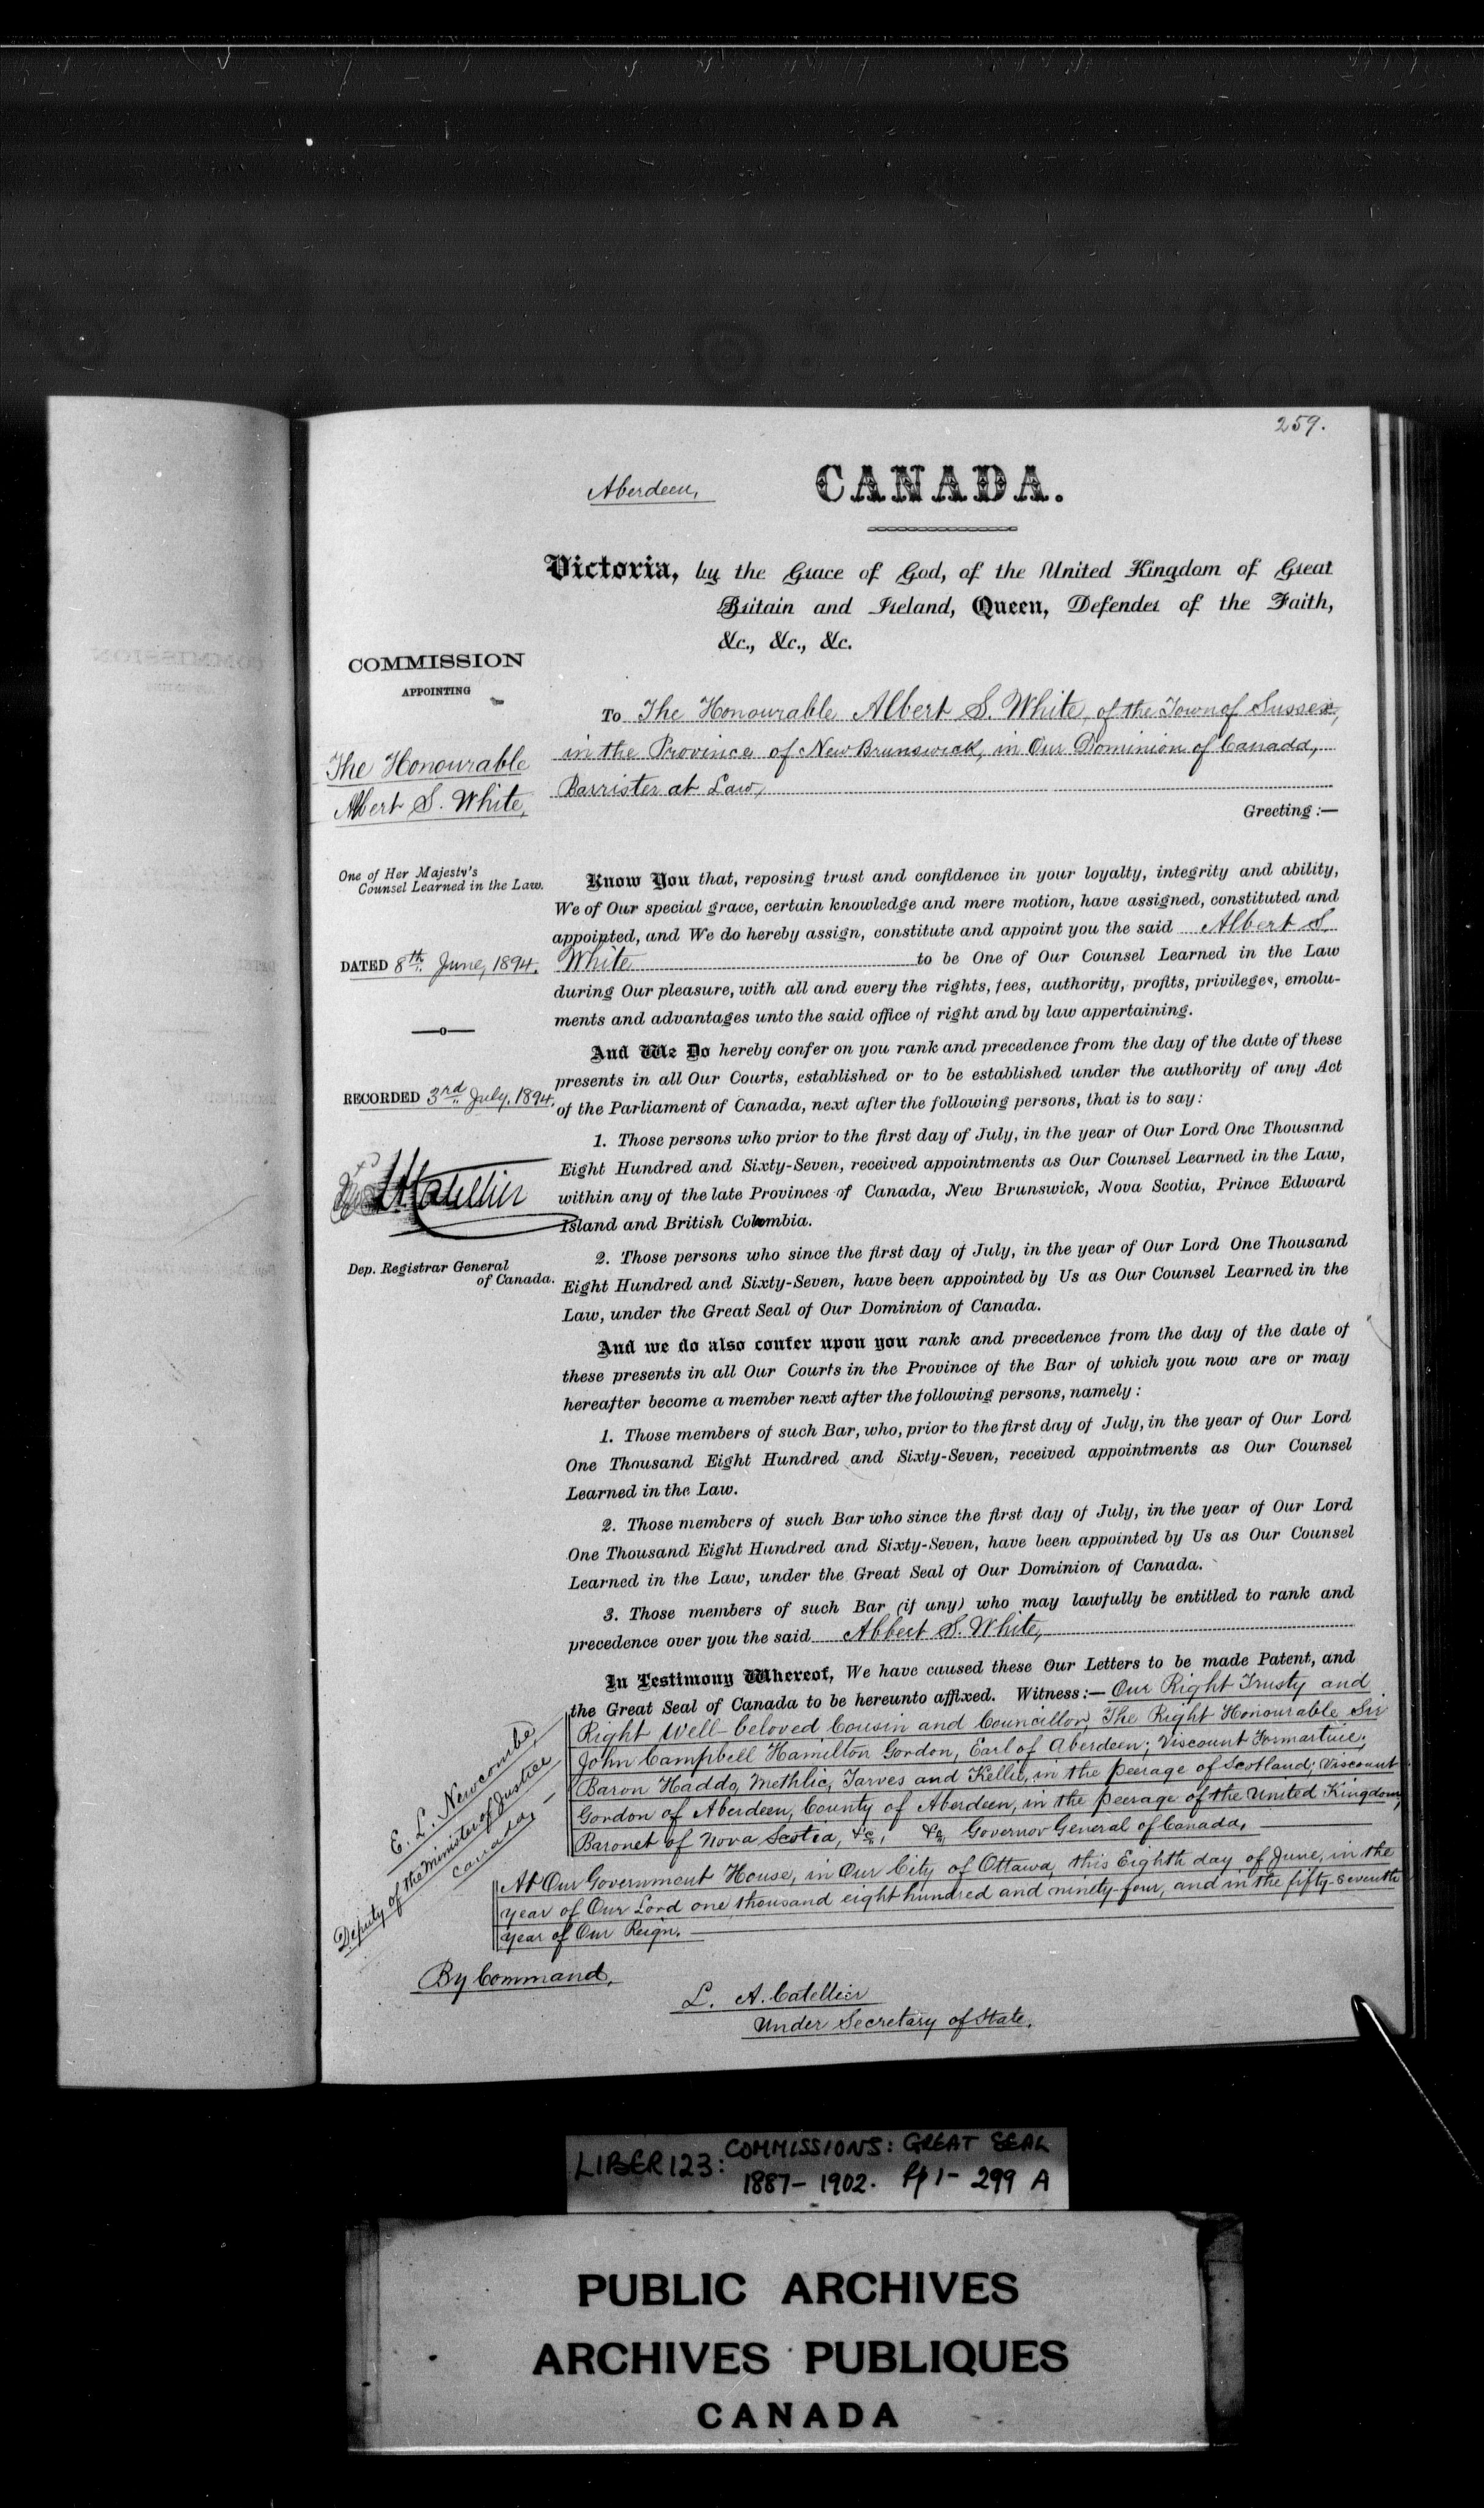 259.
Aberdeen,
CANADA.
Victoria, by the Grace of God, of the United Kingdom of Great
Britain and Ireland, Queen, Defender of the Faith,
&c., &c., &c.
COMMISSION
APPOINTING
The Honourable
Albert S. White,
One of Her Majesty's
Counsel Learned in the Law.
DATED 8th June, 1894.
—o—
RECORDED 3rd July, 1894.
L A Catellier
Dep. Registrar General
of Canada.
To The Honourable Albert S. White, of the Town of Sussex,
in the Province of New Brunswick, in Our Dominion of Canada,
Barrister at Law,
Greeting:—
Know You that, reposing trust and confidence in your loyalty, integrity and ability,
We of Our special grace, certain knowledge and mere motion, have assigned, constituted and
appointed, and We do hereby assign, constitute and appoint you the said Albert S.
White to be One of Our Counsel Learned in the Law
during Our pleasure, with all and every the rights, fees, authority, profits, privileges, emolu-
ments and advantages unto the said office of right and by law appertaining.
And We Do hereby confer on you rank and precedence from the day of the date of these
presents in all Our Courts, established or to be established under the authority of any Act
of the Parliament of Canada, next after the following persons, that is to say:
1. Those persons who prior to the first day of July, in the year of Our Lord One Thousand
Eight Hundred and Sixty-Seven, received appointments as Our Counsel Learned in the Law,
within any of the late Provinces of Canada, New Brunswick, Nova Scotia, Prince Edward
Island and British Colombia.
2. Those persons who since the first day of July, in the year of Our Lord One Thousand
Eight Hundred and Sixty-Seven, have been appointed by Us as Our Counsel Learned in the
Law, under the Great Seal of Our Dominion of Canada.
And we do also confer upon you rank and precedence from the day of the date of
these presents in all Our Courts in the Province of the Bar of which you now are or may
hereafter become a member next after the following persons, namely:
1. Those members of such Bar, who, prior to the first day of July, in the year of Our Lord
One Thousand Eight Hundred and Sixty-Seven, received appointments as Our Counsel
Learned in the Law.
2. Those members of such Bar who since the first day of July, in the year of Our Lord
One Thousand Eight Hundred and Sixty-Seven, have been appointed by Us as Our Counsel
Learned in the Law, under the Great Seal of Our Dominion of Canada.
3. Those members of such Bar (if any) who may lawfully be entitled to rank and
precedence over you the said Albert S. White,
In Testimony Whereof, We have caused these Our Letters to be made Patent, and
the Great Seal of Canada to be hereunto affixed. Witness:— Our Right Trusty and
Right Well-beloved Cousin and Councillor, The Right Honourable Sir
John Campbell Hamilton Gordon, Earl of Aberdeen; Viscount Formartine;
Baron Haddo, Methlic, Tarves and Kellie, in the peerage of Scotland; Viscount
Gordon of Aberdeen, County of Aberdeen, in the peerage of the United Kingdom,
Baronet of Nova Scotia, &c., &c., Governor General of Canada,
At Our Government House, in Our City of Ottawa, this Eighth day of June, in the
year of Our Lord one thousand eight hundred and ninety-four, and in the fifty-seventh
year of Our Reign.
E. L. Newcombe,
Deputy of the Minister of Justice
Canada,
By Command,
L. A. Catellier
Under Secretary of State.
LIBER 123: COMMISSIONS: GREAT SEAL
1887–1902. Pp 1–299 A
PUBLIC ARCHIVES
ARCHIVES PUBLIQUES
CANADA